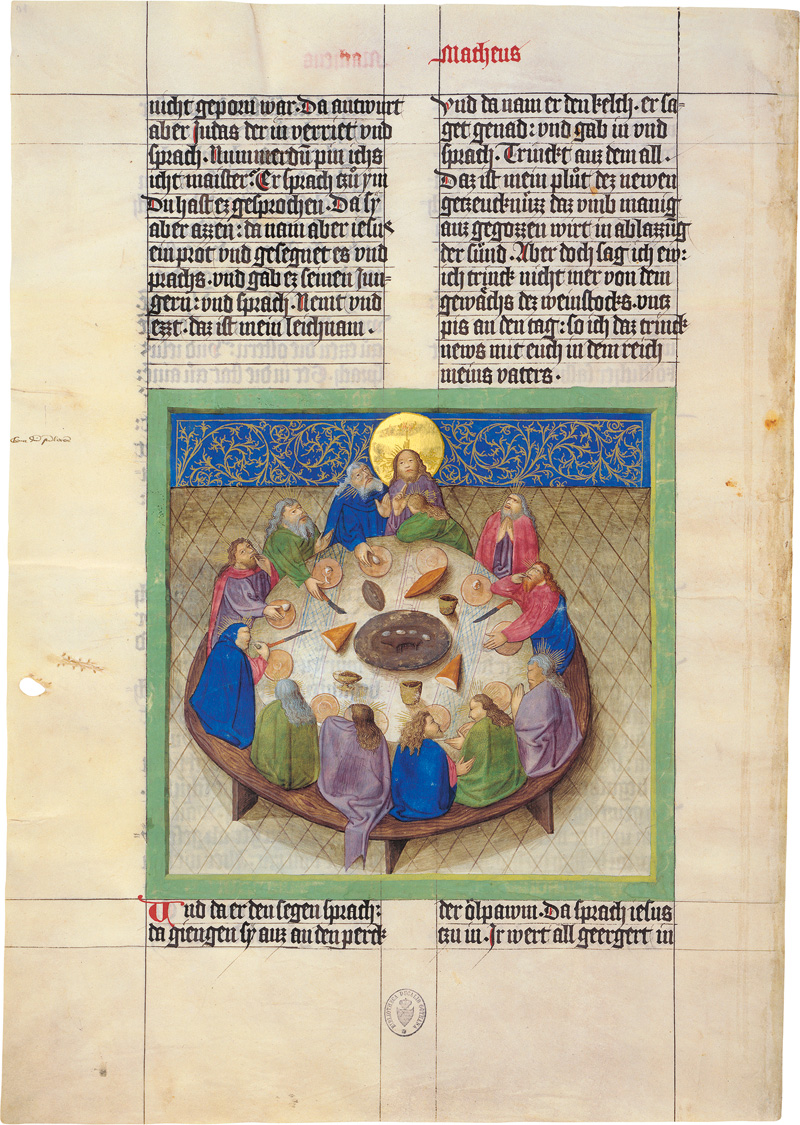 Matheus
nicht geporn war. Da antwurt
aber Judas der in verriet vnd
sprach. Nummerdu pin ichs
icht maister? Er sprach czu ym
Du hast ez gesprochen. Da sy
aber azzen: da nam aber iesus
ein prot vnd gesegnet es vnd
prachs. vnd gab ez seinen Jun=
gern: vnd sprach. Nemt vnd
ezzt. daz ist mein leichnam.
Vnd da nam er den kelch. er sa=
get genad: vnd gab in vnd
sprach. Trinckt auz dem all.
Daz ist mein plůt dez newen
geczeucknüzz daz vmb manig
auz gegozzen wirt in ablazzūg
der sünd. Aber doch sag ich ew:
ich trinck nicht mer von dem
gewächs dez weinstocks. vncz
pis an den tag: so ich daz trinck
news mit euch in dem reich
meins vaters.
Vnd da er den segen sprach:
da giengen sy auz an den perck
der ölpawm. Da sprach iesus
czu in. Ir wert all geergert in